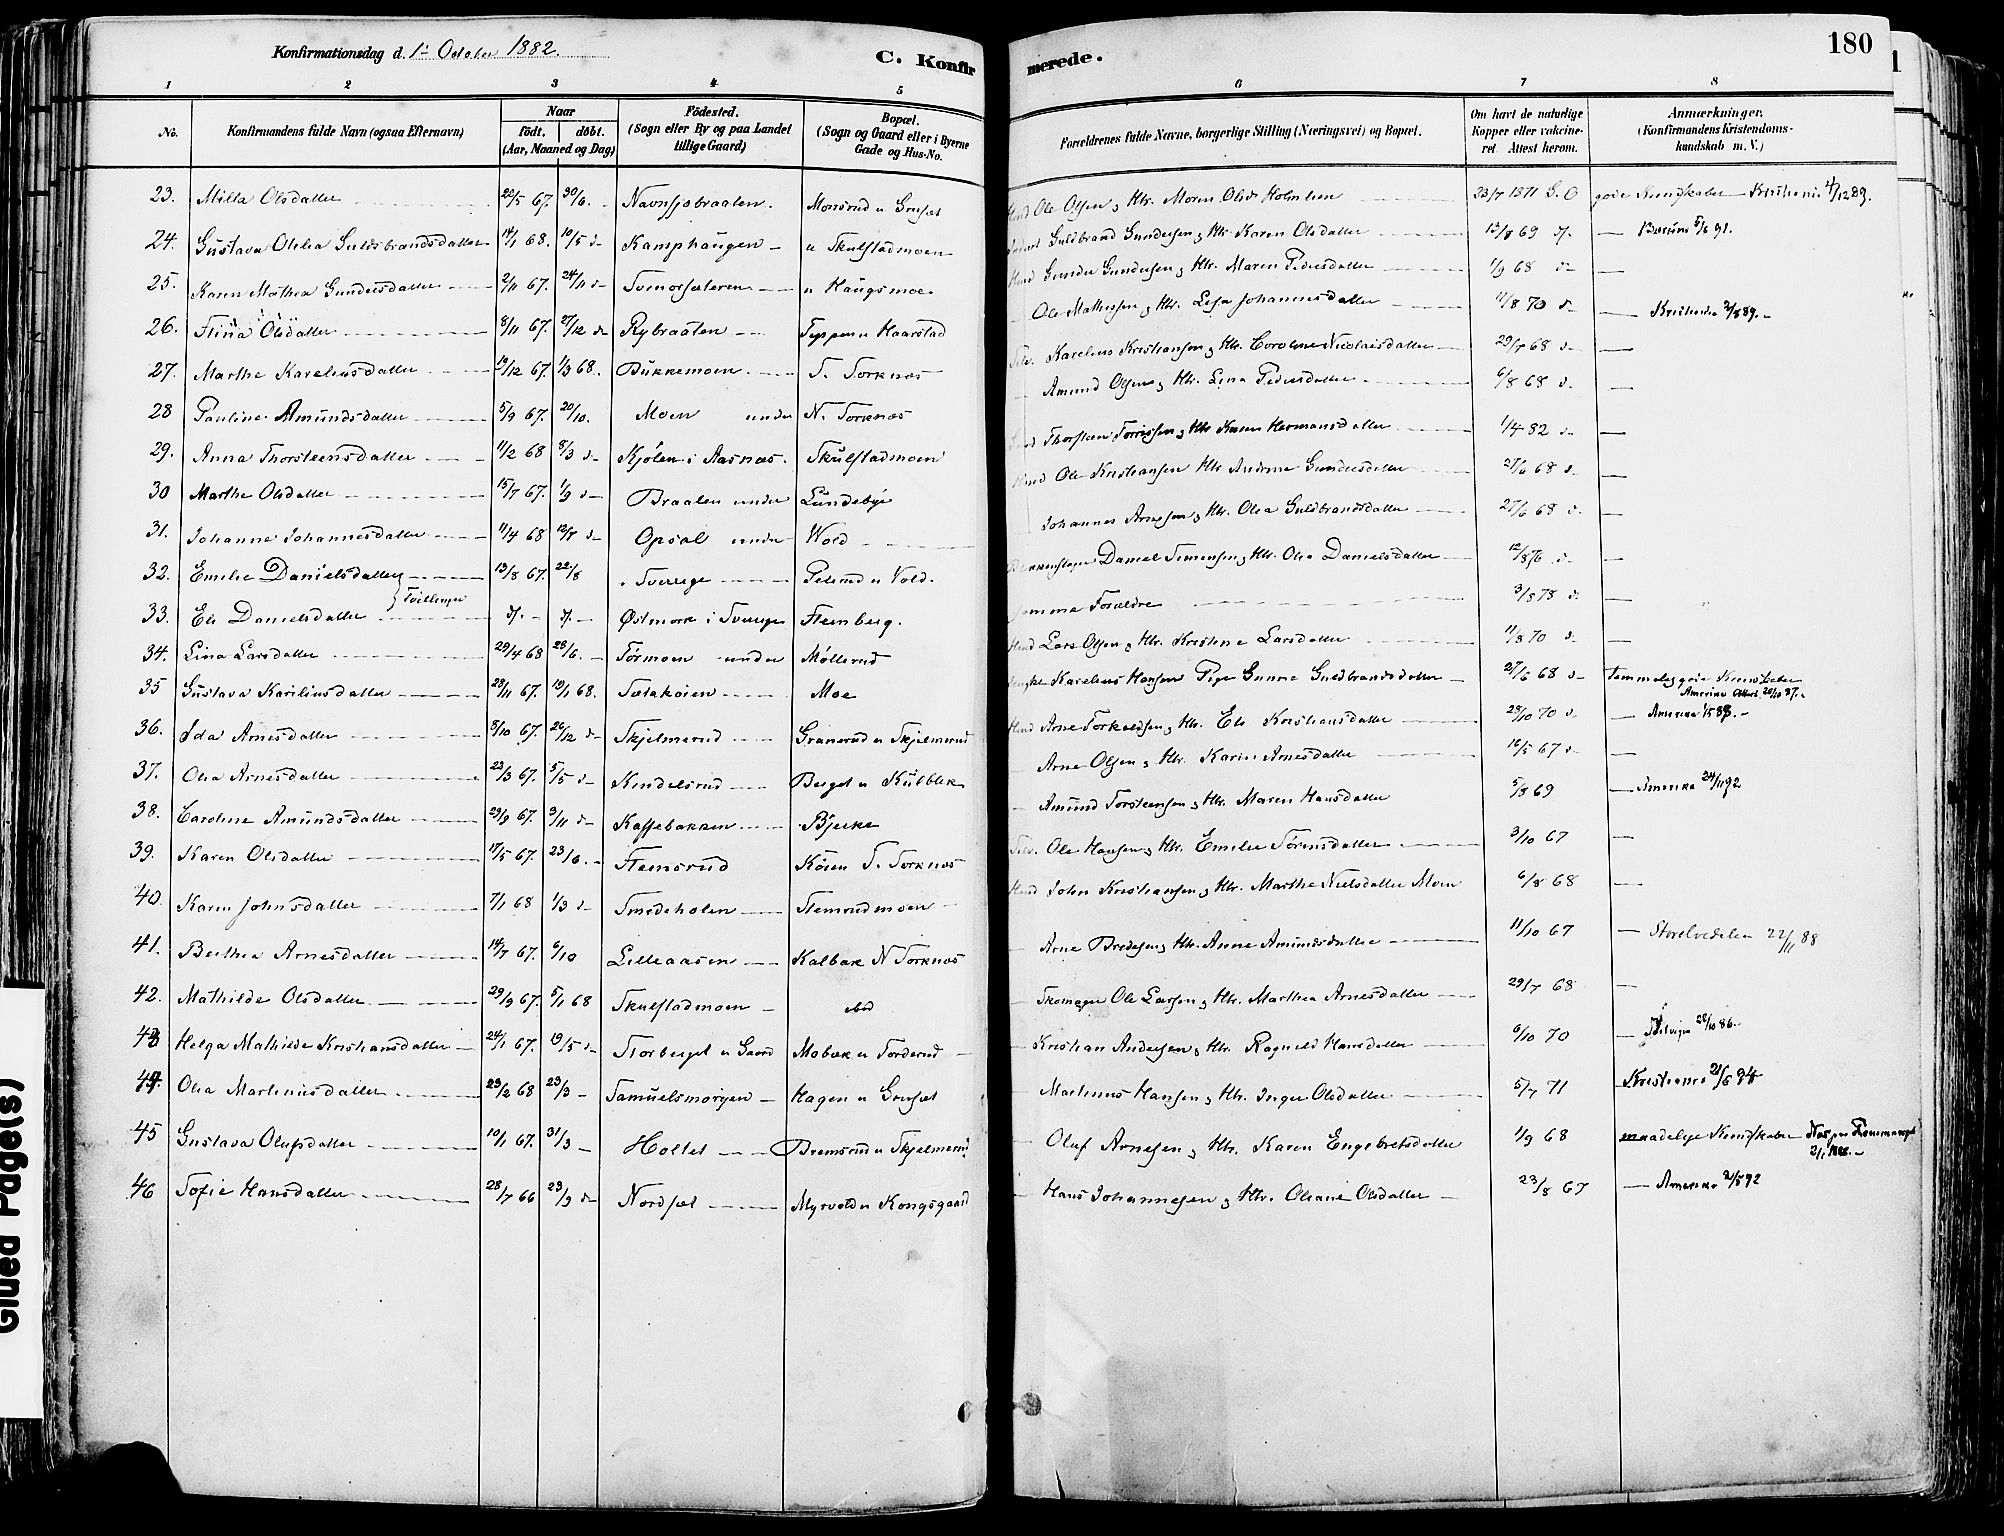 Konfirmationsdag d. 1. October 1882.
C. Konfirmerede.
180
1 2 3 4 5 6 7 8
No. Konfirmandens fulde Navn (ogsaa Efternavn) Naar født. døbt. (Aar, Maaned og Dag) Fødested. (Sogn eller By og paa Landet tillige Gaard) Bopæl. (Sogn og Gaard eller i Byerne Gade og Hus-No. Forældrenes fulde Navne, borgerlige Stilling (Næringsvei) og Bopæl. Om havt de naturlige Kopper eller vakcineret Attest herom. Anmærkninger. (Konfirmandens Kristendomskundskab m. V.)
23. Milla Olsdatter 20/5 67. 30/6. Navnssbraaten. Monsrud u Grusæt Ole Olsen & Htr. Maren Olsdr Holmlien 23/7 1871 gode Kundskaber Kristiania 4/12 89.
24. Gustava Otilia Guldbrandsdatter 14/1 68. 10/5 d- Kamphaugen u Skulstadmoen Guldbrand Gundersen & Htr. Karen Olsdatter 13/8 69 Bærum 5/6 91.
25. Karen Mathea Gundersdatter 2/11 67. 24/11 d- Svenorsæteren u Haugsmoe Gunder Gundersen & Htr. Maren Pedersdatter 1/9 68 d-
26. Stina Olsdatter 8/11 67. 27/12 d- Rybraaten Teppen u Haarstad Ole Mathissen & Htr. Lisa Johannesdatter 11/8 70 d- Kristiania 2/8 89.
27. Marthe Kareliusdatter 19/12 67. 1/3 68. Bukkemoen S. Torknæs Karelius Kristiansen & Htr. Caroline Nicolaisdatter 29/7 68 d-
28 Pauline Amundsdatter 5/9 67. 20/10. Moen under N. Torknæs Amund Olsen & Htr. Lina Pedersdatter 6/8 68 d.
29. Anna Thorsteensdatter 11/2 68 8/3 d- Kjølen i Aasnæs. Skulstadmoen Thorsteen Torrissen & Htr Karen Hermansdatter 1/4 82 d-
30 Marthe Olsdatter 15/7 67. 1/9 d- Braaten under Lundebye Ole Kristiansen Htr Andrine Gundersdatter 27/6 68 d.
31. Johanne Johannesdatter 11/4 68 12/7 d- Opsal under Wold Johannes Arnesen & Htr. Olea Guldbrandsdatter 27/6 68 d-
32. Emilie Danielsdatter 19/8 67. 22/8 Sverige Peterud u Vold. Daniel Simensen & Htr. Olia Danielsdatter 12/8 76 d-
Tvillinger
33. Eli Danielsdatter Østmark i Sverige Stenberg. Samme Forældre 3/8 78 d.
34. Lina Larsdatter 29/4 68 28/6. Tørmoen under Møllerud Lars Olsen & Htr. Kristine Larsdatter 11/8 70 d-
35 Gustava Kariliusdatter 28/11 67. 19/1 68. Sætakøien Moe Karelius Hansen Pige Gunne Guldbrandsdatter 27/6 68 d- Temmelig gode Kundskaber
Amerika Attest. 20/10 87.
36. Ida Arnesdatter 8/10 67. 26/12 d- Skjelmerud Granerud u Skjelmerud Arne Torkeldsen & Htr. Eli Kristiansdatter 28/10 70 d- Amerika
37. Olia Arnesdatter 23/3 67. 5/5 d- Kindelsrud Berget u Kulblik Arne Olsen & Htr. Karin Arnesdatter 16/5 67 d-
38. Caroline Amundsdatter 29/9 67. 3/11 d- Kaffebakken Bjerke Amund Torsteensen & Htr. Maren Hansdatter 5/8 69 Amerika
39. Karen Olsdatter 17/5 67. 23/6. Stemsrud Køien S. Torknæs Ole Hansen & Htr. Emilie Tørrisdatter 3/10 67
40. Karen Johnsdatter 7/1 68 1/3 d- Smedeholen Stemsrudmoen John Kristiansen & Htr. Marthe Nielsdatter Moen 6/8 68
41. Berthea Arnesdatter 14/7 67. 6/10 Lilleaasen Kalbæk N Torknæs Arne Bredesen & Htr. Anne Amundsdatter 11/10 67 Storelvedalen 22/11 88
42. Mathilde Olsdatter 29/9 67. 5/1 68 Skulstadmoen ibid Skomager Ole Larsen & Htr. Marthea Arnesdatter 29/7 68
43 Helga Mathilde Kristiansdatter 24/1 67. 19/5 d- Storberget u Gaard Mobæk u Torderud Kristian Andersen & Htr. Ragnild Hansdatter 6/10 70
44. Olia Martiniusdatter 23/2 68 23/3 Samuelsmorgen Hagen u Grusæt Martinus Hansen & Htr. Inger Olsdatter 5/7 71 Kristiania
45 Gustava Olufsdatter 10/1 67. 31/3 Holtet Bremsrud u Skjelmerud Oluf Arnesen & Htr. Karen Engebretsdatter 1/9 68 maadelige Kundskaber
46 Sofie Hansdatter 28/7 66 23/9 d- Nordset Myrvold u Kongsgaard Hans Johannesen & Htr. Oliane Olsdatter 23/8 67 Amerika 2/5 92
Glued Page(s)